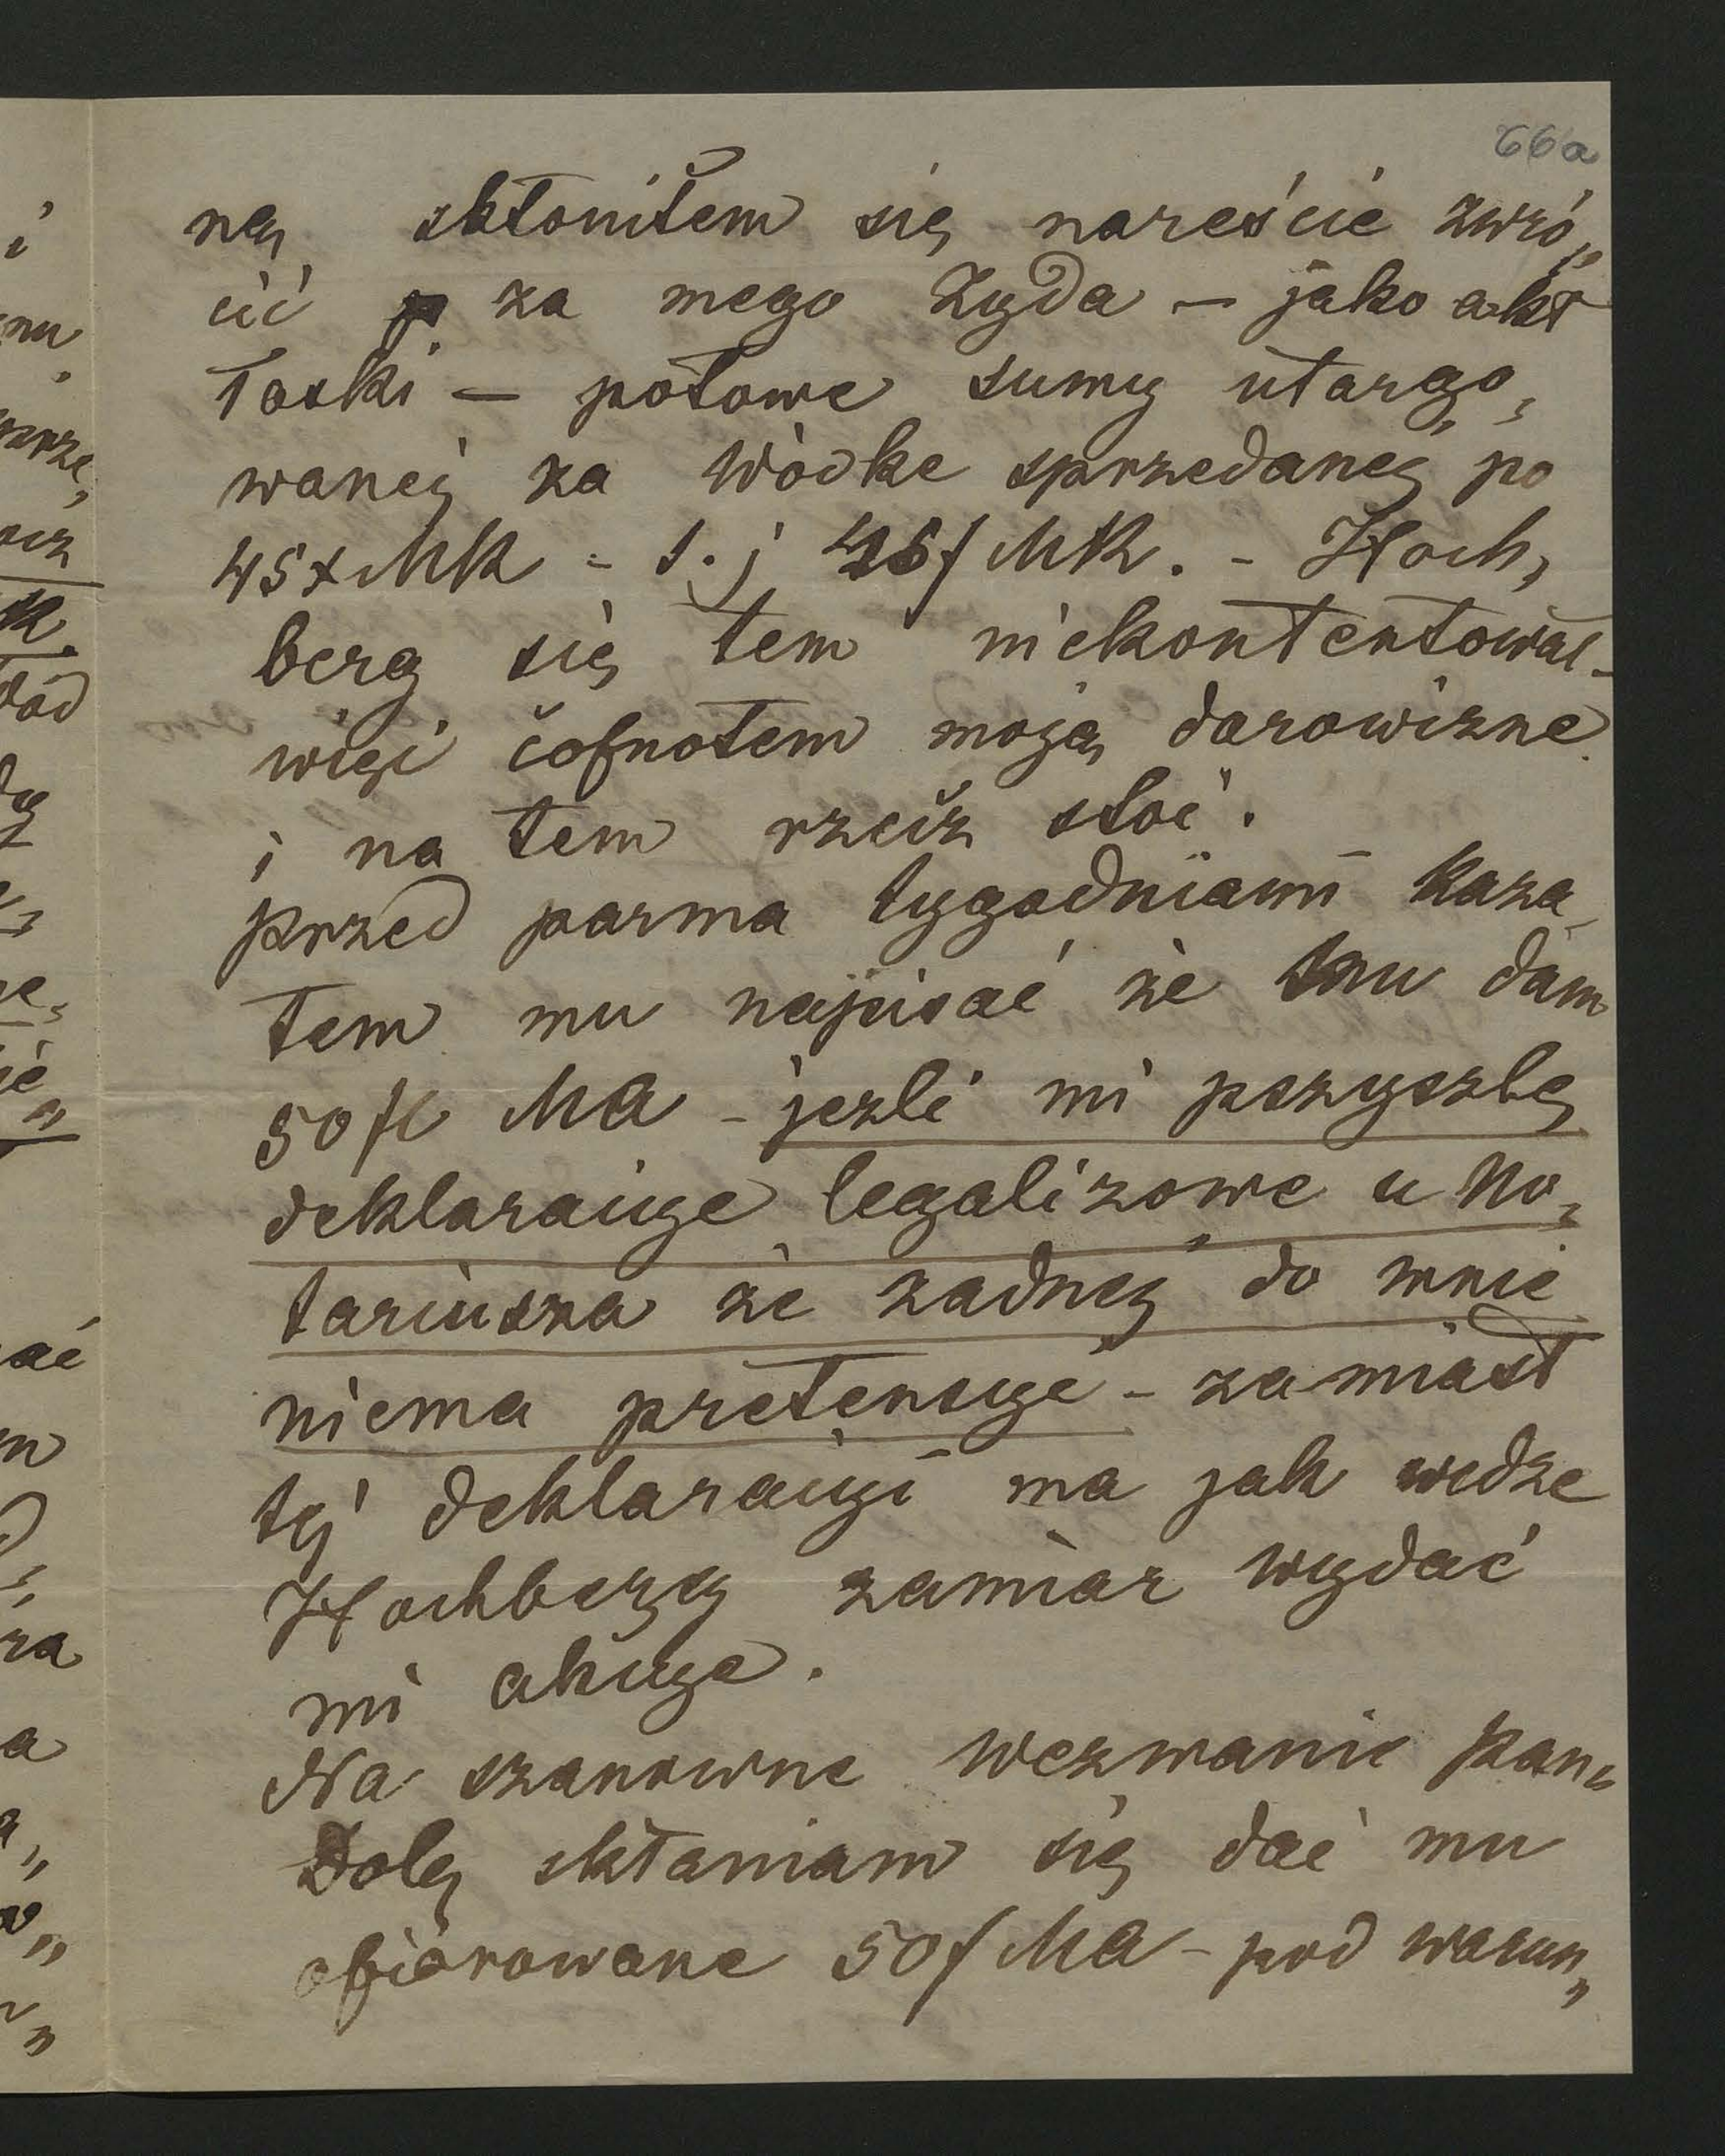 66a
ną skłoniłem się nareście zwró„
cić za mego Żyda – jako akt
łaski – połowe sumy utargo„
wanej za Wódke sprzedaneg po
45x MK = t. j 45f MK. – Hoch„
berg się tem niekontentował –
więc cofnołem moją darowizne
i na tem rzecz stoi.
przed parma tygodniami kaza„
łem mu napisać że mu dam
50 fl MK – jezli mi pszyszlę
deklaracyje legalizowe u No„
tariusza że zadnej do mnie
niema pretensye – zamiast
tej deklaracyi ma jak widze
Hochberg zamiar wydać
mi akcyje.
Na szanowne wezwanie Pan„
Dolę skłaniam się dać mu
ofiarowane 50f MK – pod warun„